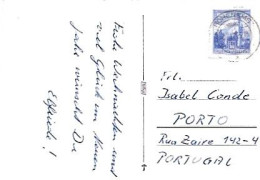 Frohe Weihnachten und
viel Glück im Neuen
Jahr wünscht Dir
Elfriede !
Frl.
Isabel Conde
PORTO
Rua Zaire 142-4
PORTUGAL